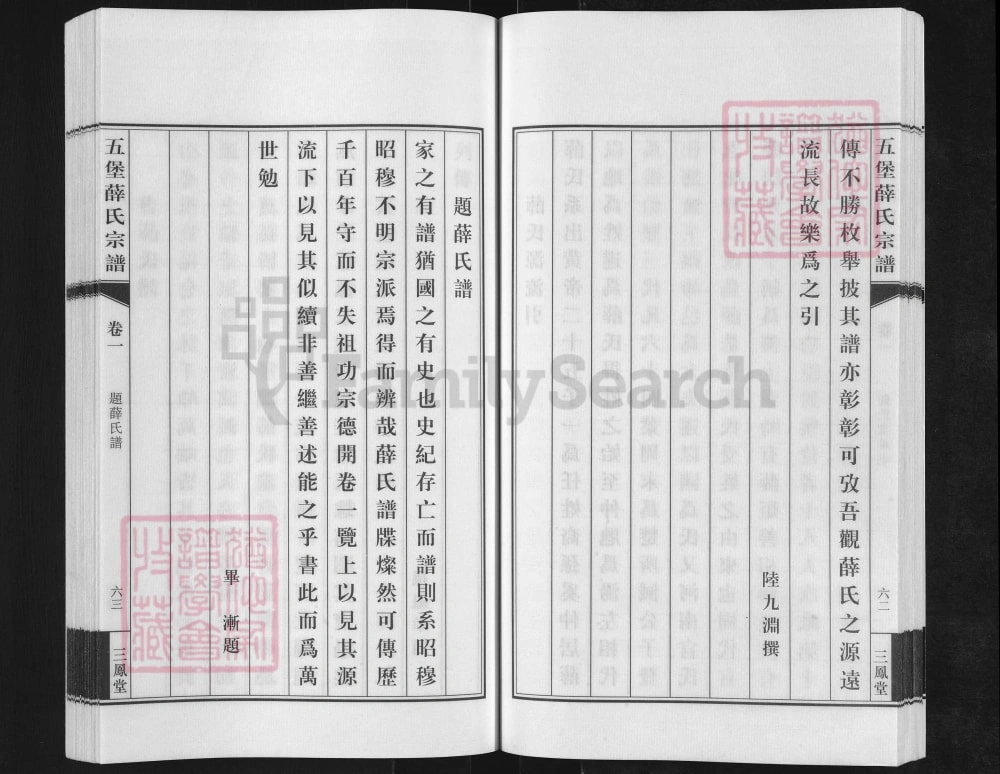 五堡薛氏宗譜
六二
三鳳堂
傳不勝枚舉披其譜亦彰彰可攷吾觀薛氏之源遠
流長故樂爲之引
陸九淵撰
題薛氏譜
家之有譜猶國之有史也史紀存亡而譜則系昭穆
昭穆不明宗派焉得而辨哉薛氏譜牒燦然可傳歷
千百年守而不失祖功宗德開卷一覽上以見其源
流下以見其似續非善繼善述能之乎書此而爲萬
世勉
畢漸題
五堡薛氏宗譜
卷一
題薛氏譜
六三
三鳳堂
FamilySearch